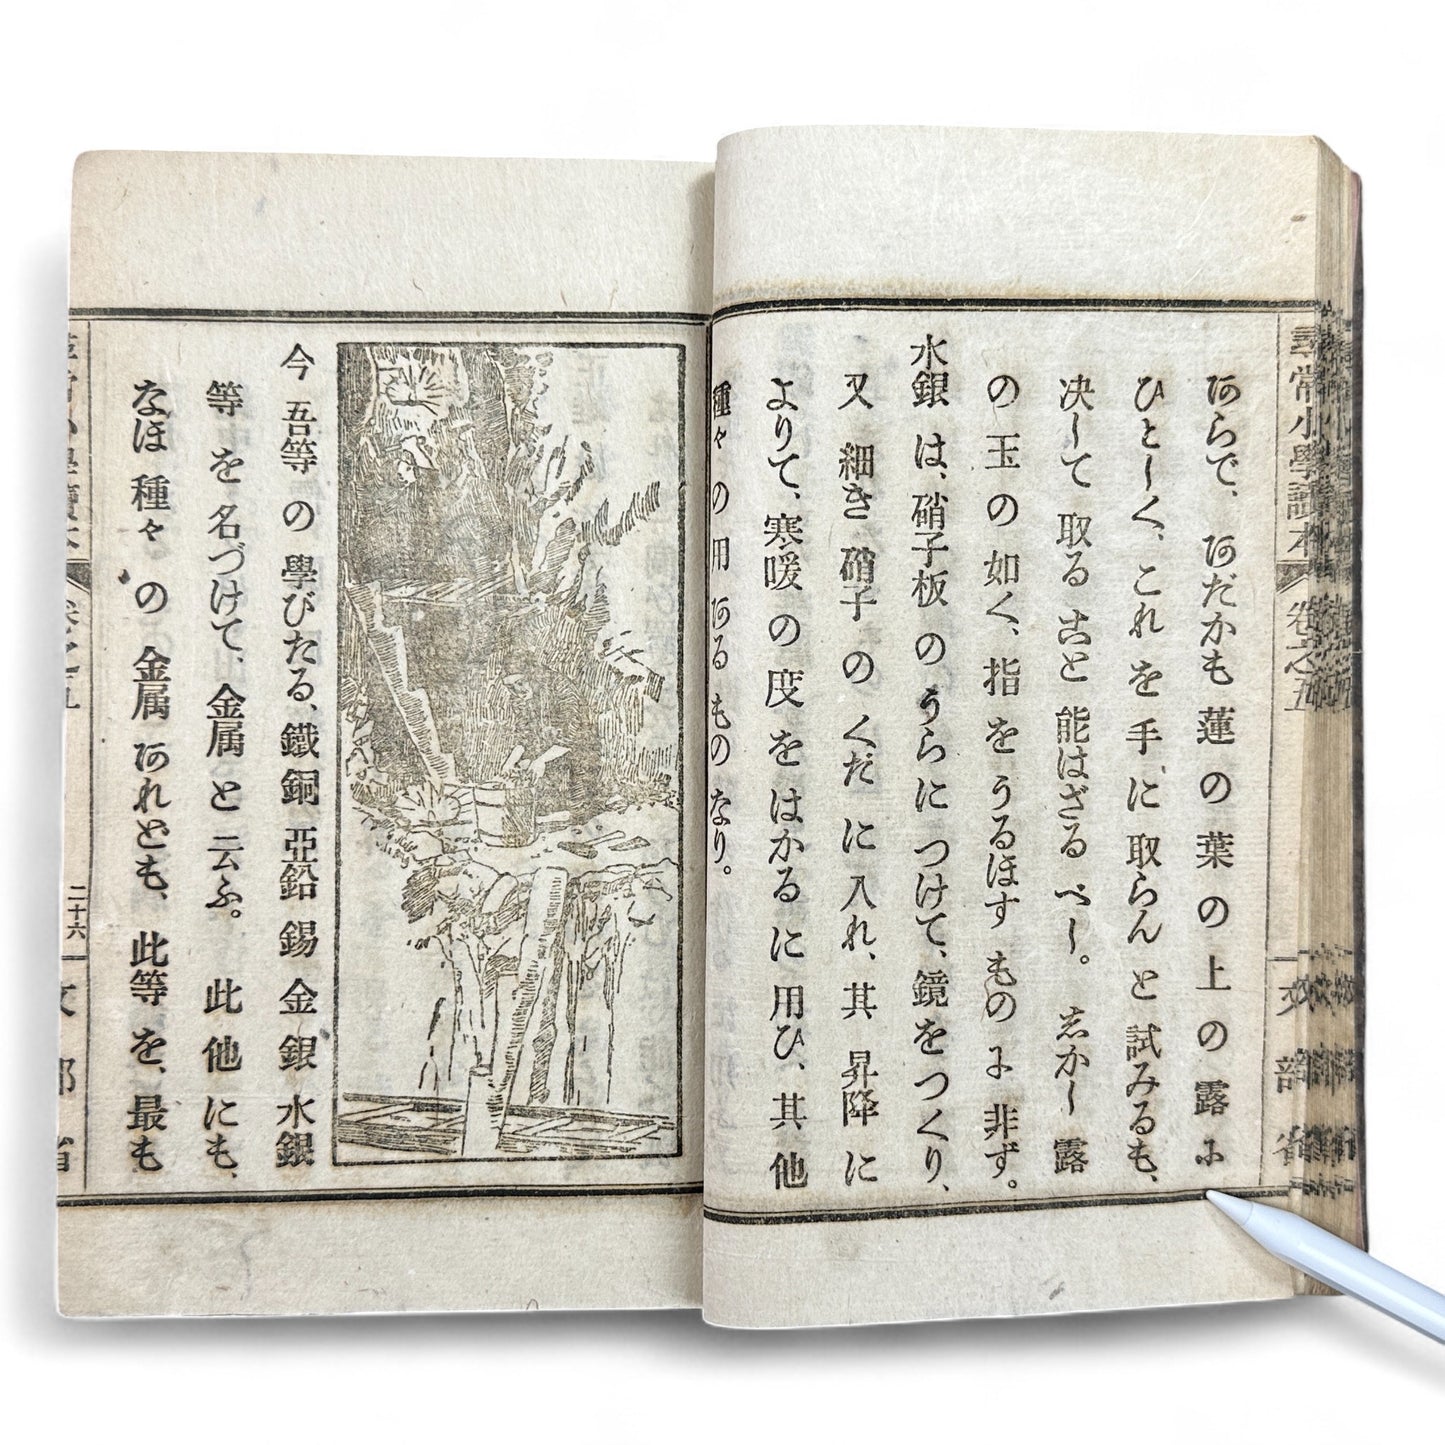 尋常小學讀本 卷之五 文部省
あらで、あだかも蓮の葉の上の露に
ひとしく、これを手に取らんと試みるも、
决して取ること能はざるべし。しかし露
の玉の如く、指をうるほすものに非ず。
水銀は、硝子板のうらにつけて、鏡をつくり、
又細き硝子のくだに入れ、其昇降に
よりて、寒暖の度をはかるに用ひ、其他
種々の用あるものなり。
今吾等の學びたる、鐵銅亞鉛錫金銀水銀
等を名づけて、金属と云ふ。此他にも、
なほ種々の金属あれども、此等を、最も
尋常小學讀本 卷之五 二十六 文部省